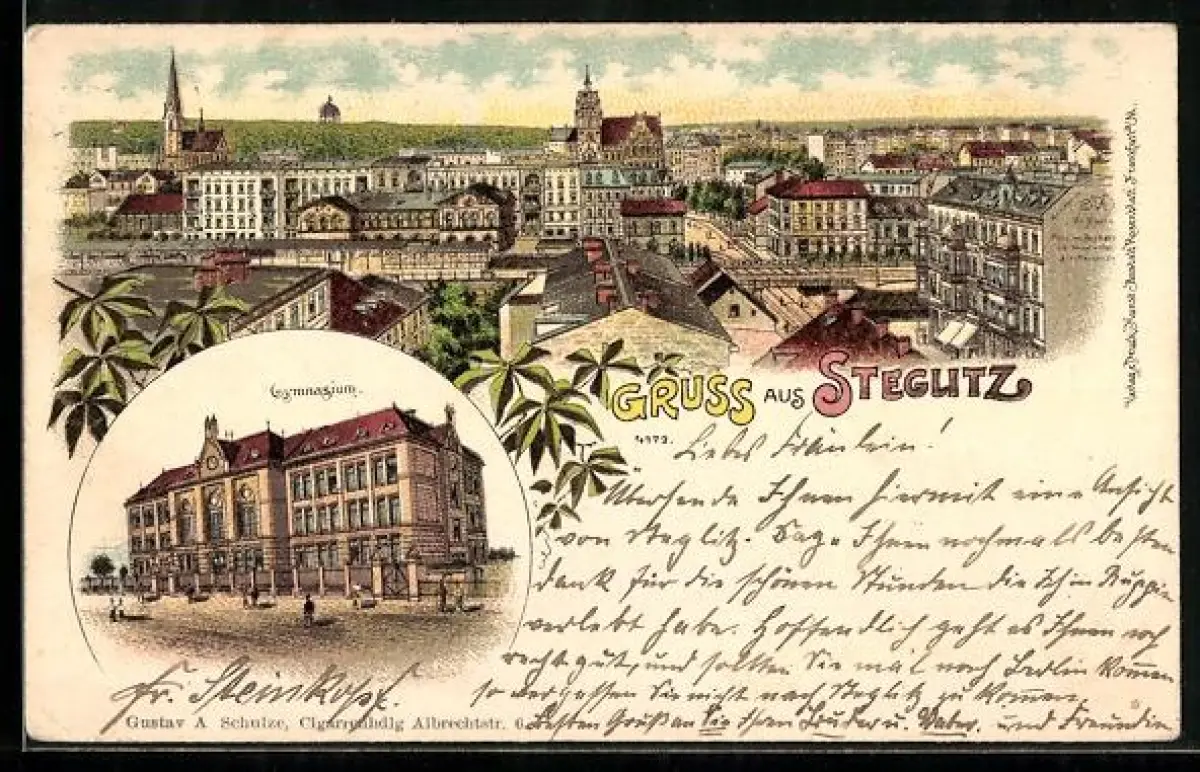 GRUSS AUS STEGLITZ
Gymnasium.
4172.
Liebes Fräulein!
Übersende Ihnen hiermit eine Ansicht
von Steglitz. Sage Ihnen nochmals besten
dank für die schönen Stunden die Ich in Ruppin
verlebt habe. Hoffendlich geht es Ihnen noch
recht gut, und sollten Sie mal nach Berlin kommen
so vergessen Sie nicht nach Steglitz zu kommen.
Besten Gruß an Sie Ihren Bruder u. und Freundin
Fr. Steinkopf.
Gustav A Schulze, Cigarrenhdlg Albrechtstr. 6